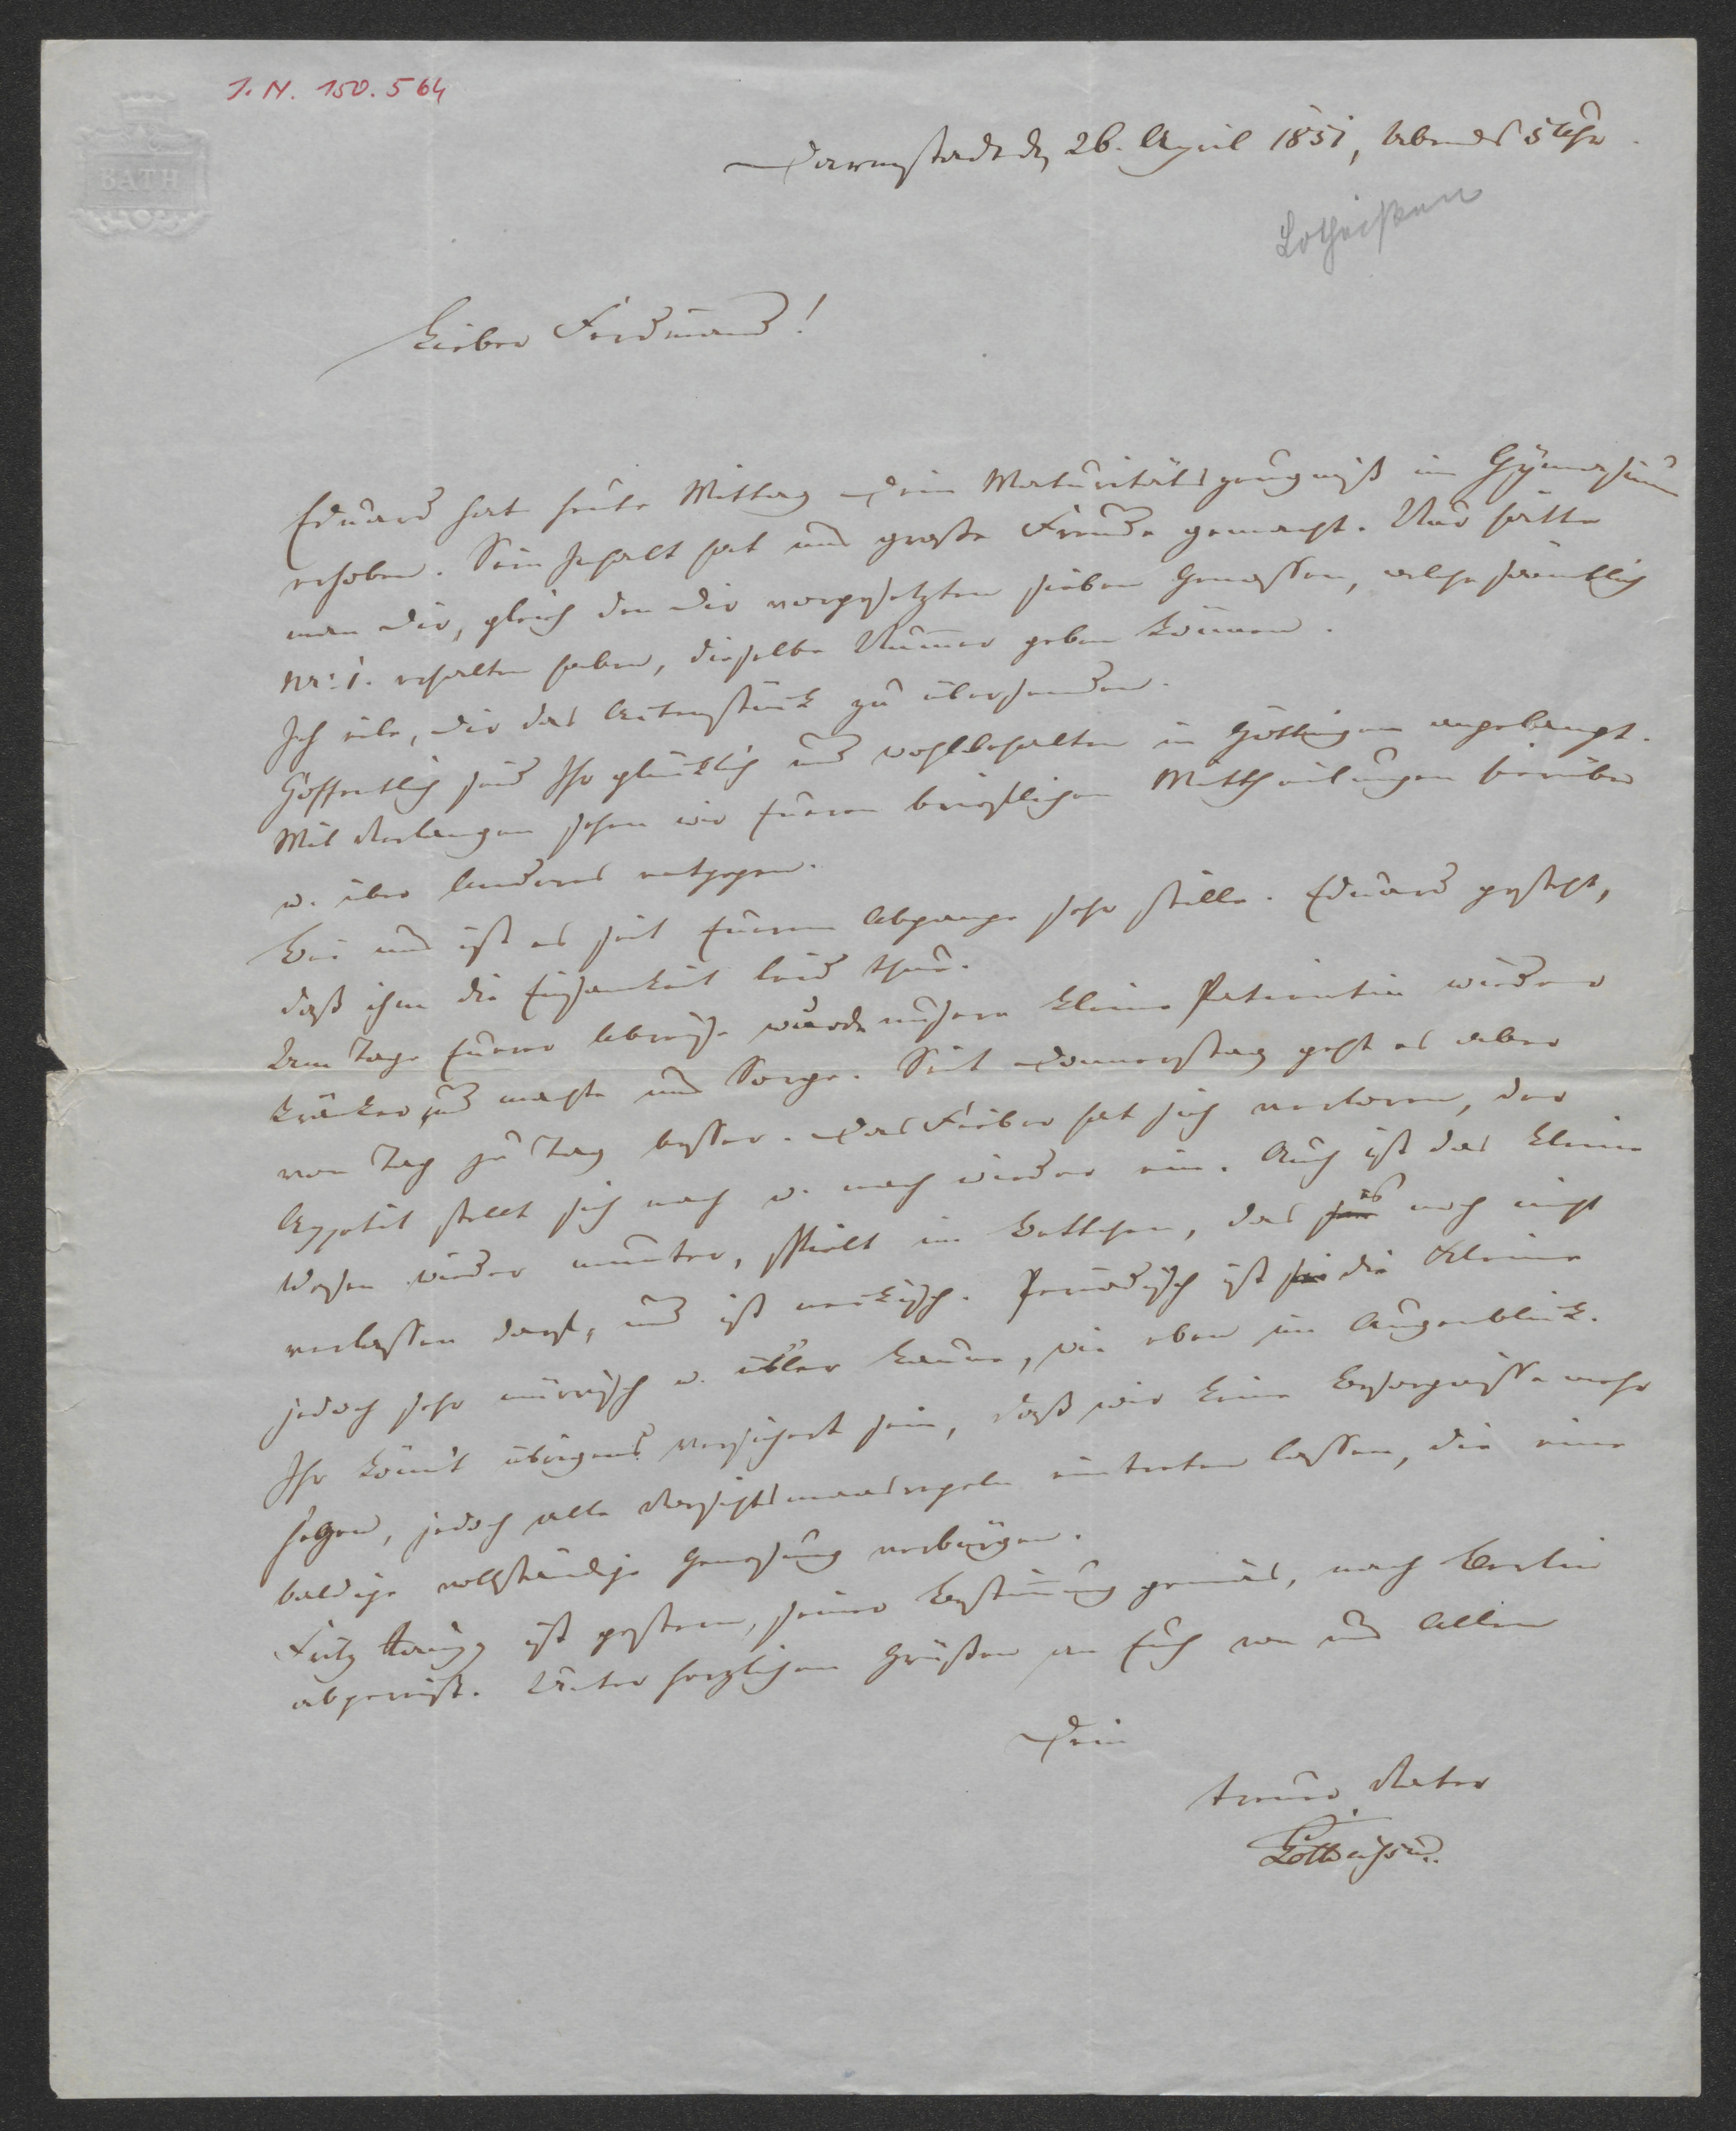 I. N. 150.564
BATH
Darmstadt den 26. April 1851, Abends 5 Uhr.
Lotheißen
Lieber Ferdinand!
Eduard hat heute Mittag Dein Maturitätszeugniß im Gymnasium
erhoben. Sein Inhalt hat uns große Freude gemacht. Nur hätte
man Dir, gleich den Dir vorgesetzten sieben Genossen, welche sämtlich
Nr: 1. erhalten haben, dieselbe Nummer geben können.
Ich eile, Dir das Actenstück zu übersenden.
Hoffentlich seid Ihr glücklich und wohlbehalten in Göttingen angelangt.
Mit Verlangen sehen wir Eueren brieflichen Mittheilungen hierüber
u. über Anderes entgegen.
Bei uns ist es seit Euerem Abgange sehr stille. Eduard gesteht,
daß ihm die Einsamkeit leid thue.
Am Tage Euerer Abreise wurde unsere kleine Patientin wieder
kränker und machte uns Sorge. Seit Donnerstag geht es aber
von Tag zu Tag besser. Das Fieber hat sich verloren, der
Appetit stellt sich nach u. nach wieder ein. Auch ist das kleine
Wesen wieder munter, spielt im Bettchen, das es noch nicht
verlassen darf, und ist neckisch. Periodisch ist die Kleine
jedoch sehr mürrisch u. übler Laune, wie eben im Augenblick.
Ihr könnt übrigens versichert sein, daß wir keine Besorgnisse mehr
hegen, jedoch alle Vorsichtsmaasregeln eintreten lassen, die eine
baldige vollständige Genesung verbürgen.
Fritz ist gestern, seiner Bestimmung gemäs, nach Berlin
abgereist. Unter herzlichen Grüßen an Euch von uns Allen
Dein
treuer Vater
Lotheissen.